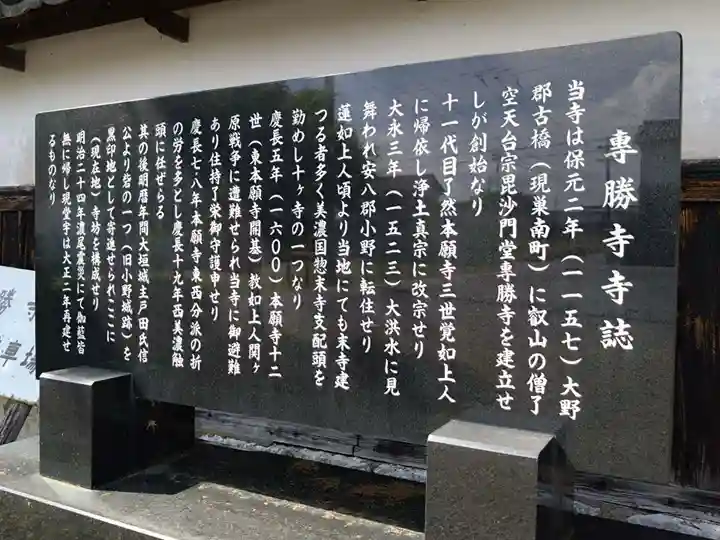 專勝寺寺誌
当寺は保元二年（一一五七）大野
郡古橋（現巣南町）に叡山の僧了
空天台宗毘沙門堂専勝寺を建立せ
しが創始なり
十一代目了然本願寺三世覚如上人
に帰依し浄土真宗に改宗せり
大永三年（一五二三）大洪水に見
舞われ安八郡小野に転住せり
蓮如上人頃より当地にても末寺建
つる者多く美濃国惣末寺支配頭を
勤めし十ヶ寺の一つなり
慶長五年（一六〇〇）本願寺十二
世（東本願寺開基）教如上人関ヶ
原戦争に遭難せられ当寺に御避難
あり住持了栄御守護申せり
慶長七八年本願寺東西分派の折
の労を多とし慶長十九年西美濃触
頭に任ぜらる
其の後明暦年間大垣城主戸田氏信
公より砦の一つ（旧小野城跡）を
黒印地として寄進せられここに
（現在地）寺坊を構成せり
明治二十四年濃尾震災にて伽藍皆
無に帰し現堂宇は大正二年再建せ
るものなり